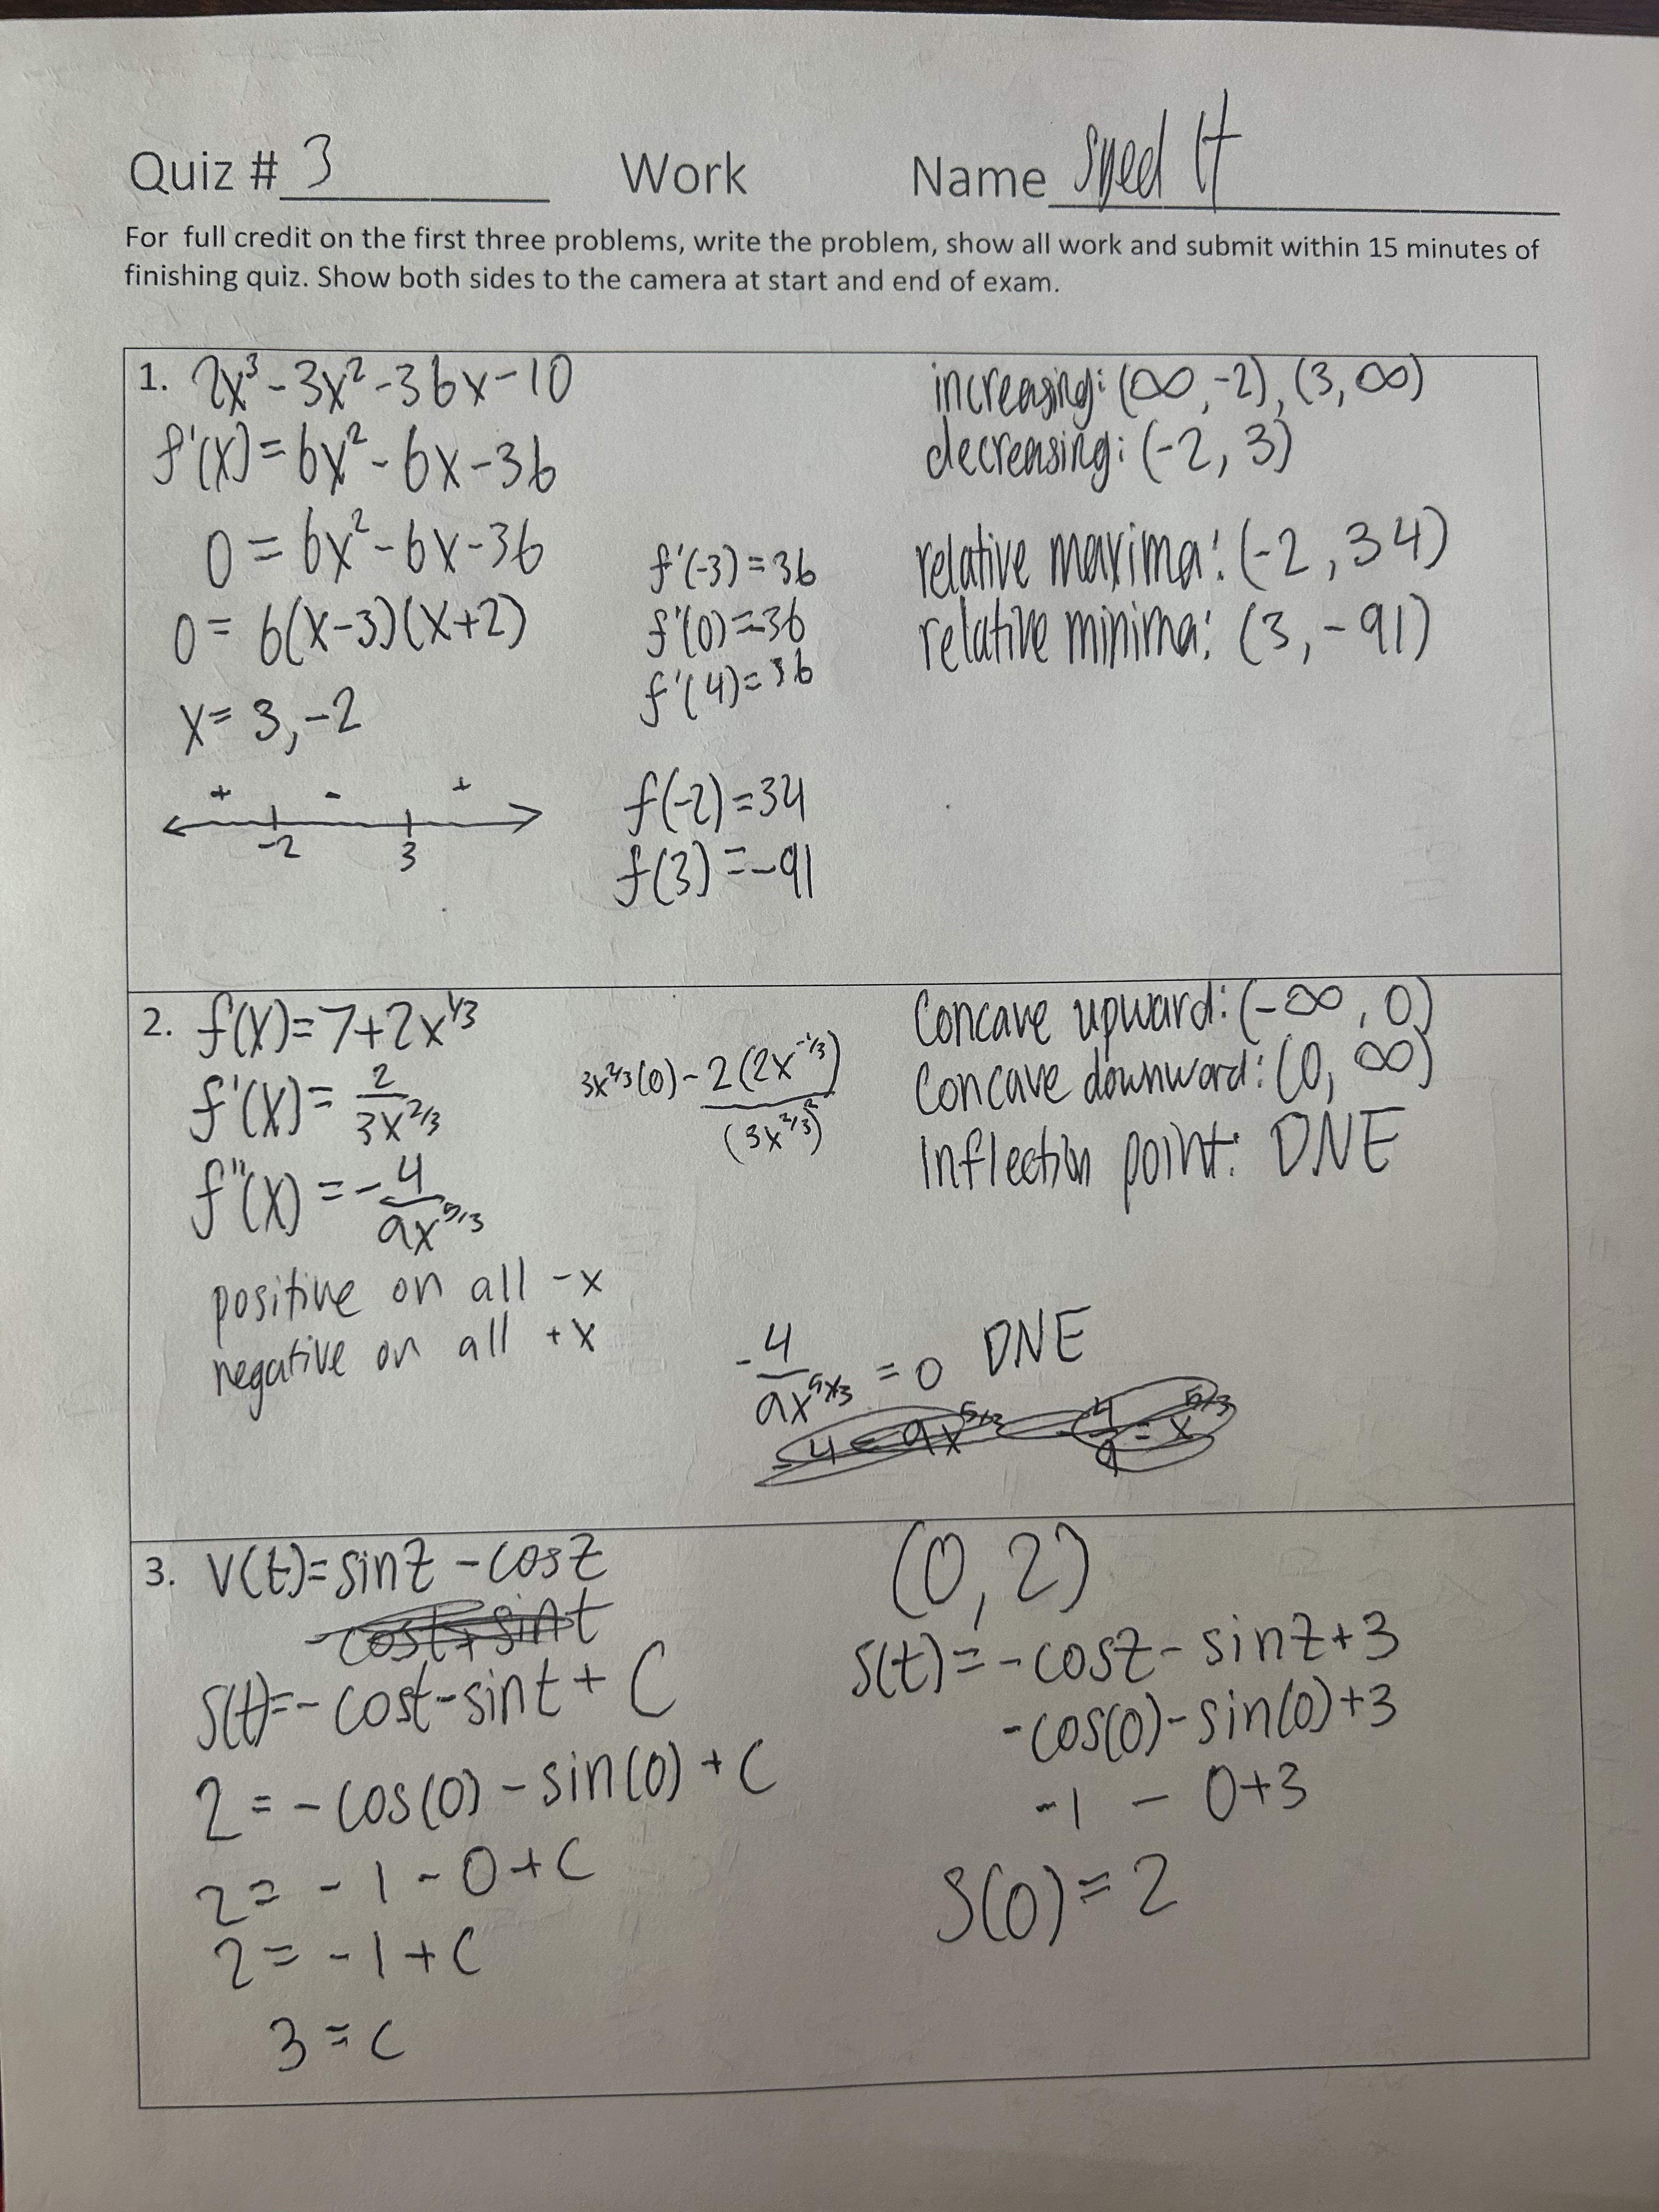 Quiz # 3 Work Name Syed H
For full credit on the first three problems, write the problem, show all work and submit within 15 minutes of
finishing quiz. Show both sides to the camera at start and end of exam.
1. 2x³-3x²-36x-10
f'(x)=6x²-6x-36
0=6x²-6x-36
0=6(x-3)(x+2)
x=3,-2
+ - +
-2 3
f'(-3)=36
f'(0)=-36
f'(4)=36
f(-2)=34
f(3)=-91
increasing: (∞,-2), (3,∞)
decreasing: (-2,3)
relative maxima: (-2,34)
relative minima: (3,-91)
2. f(x)=7+2x^1/3
f'(x)=2/3x^2/3
f''(x)=-4/9x^5/3
positive on all -x
negative on all +x
3x^2/3(0)-2(2x^-1/3)
(3x^2/3)²
Concave upward: (-∞,0)
Concave downward: (0,∞)
Inflection point: DNE
-4/9x^5/3=0 DNE
-4=9x^5/3 -4/9=x^5/3
3. v(t)=sint-cost
-cost+sint
s(t)=-cost-sint+C
2=-cos(0)-sin(0)+C
2=-1-0+C
2=-1+C
3=C
(0,2)
s(t)=-cost-sint+3
-cos(0)-sin(0)+3
-1-0+3
S(0)=2